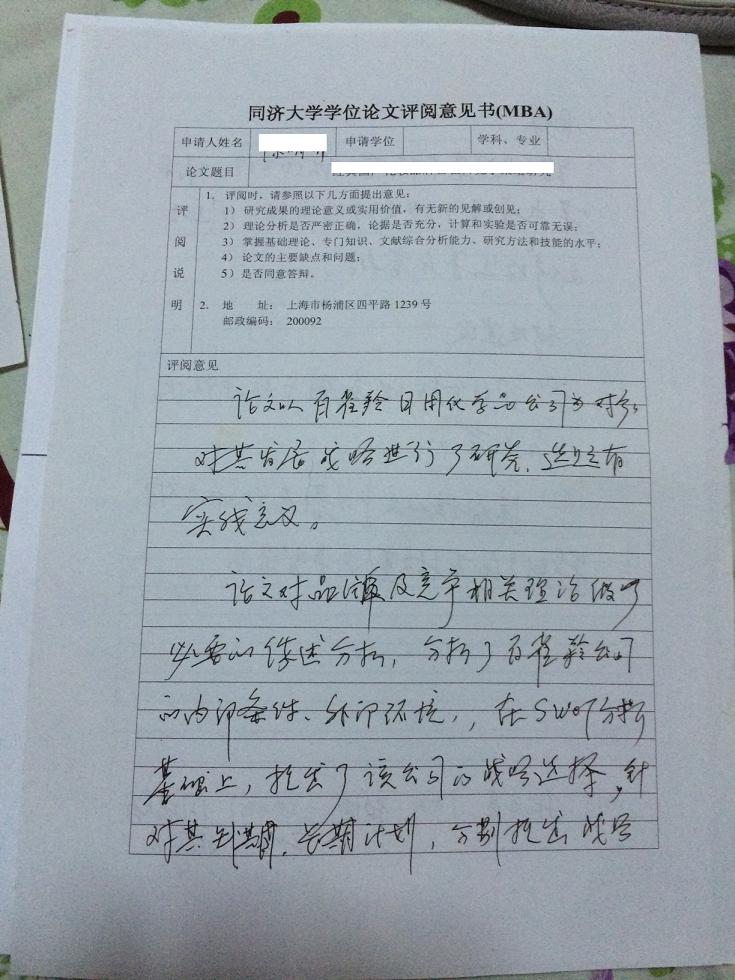 同济大学学位论文评阅意见书(MBA)
申请人姓名 申请学位 学科、专业
论文题目
评阅说明
1. 评阅时，请参照以下几方面提出意见：
1） 研究成果的理论意义或实用价值，有无新的见解或创见；
2） 理论分析是否严密正确，论据是否充分，计算和实验是否可靠无误；
3） 掌握基础理论、专门知识、文献综合分析能力、研究方法和技能的水平；
4） 论文的主要缺点和问题；
5） 是否同意答辩。
2. 地 址： 上海市杨浦区四平路 1239 号
邮政编码： 200092
评阅意见
论文以百雀羚日用化学品公司为对象
对其发展战略进行了研究，选题有
实践意义。
论文对品牌及竞争相关理论做了
必要的综述分析，分析了百雀羚公司
的内部条件、外部环境，，在SWOT分析
基础上，提出了该公司的战略选择，针
对其短期、长期计划，分别提出战略